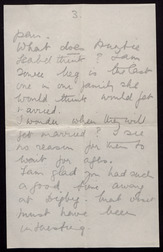 3.
pair.
What does Auntie
Isabel think? I am
sure Meg is the last
one in our family she
would think would get
married.
I wonder when they will
get married? I see
no reason for them to
wait for after.
I am glad you had such
a good time away
at Digby. that
must have been
interesting.